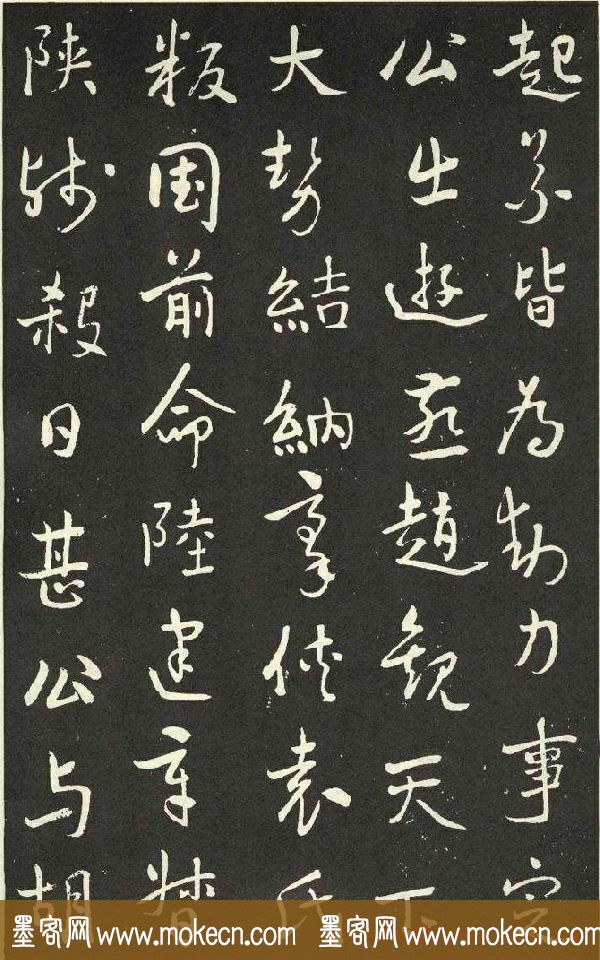 起義皆為力事定
公出遊燕趙觀天下
大勢結納羣俠袁氏
叛国前命陸建章督
陝残殺日甚公与胡
墨客网 www.mokecn.com 墨客网 www.mokecn.com